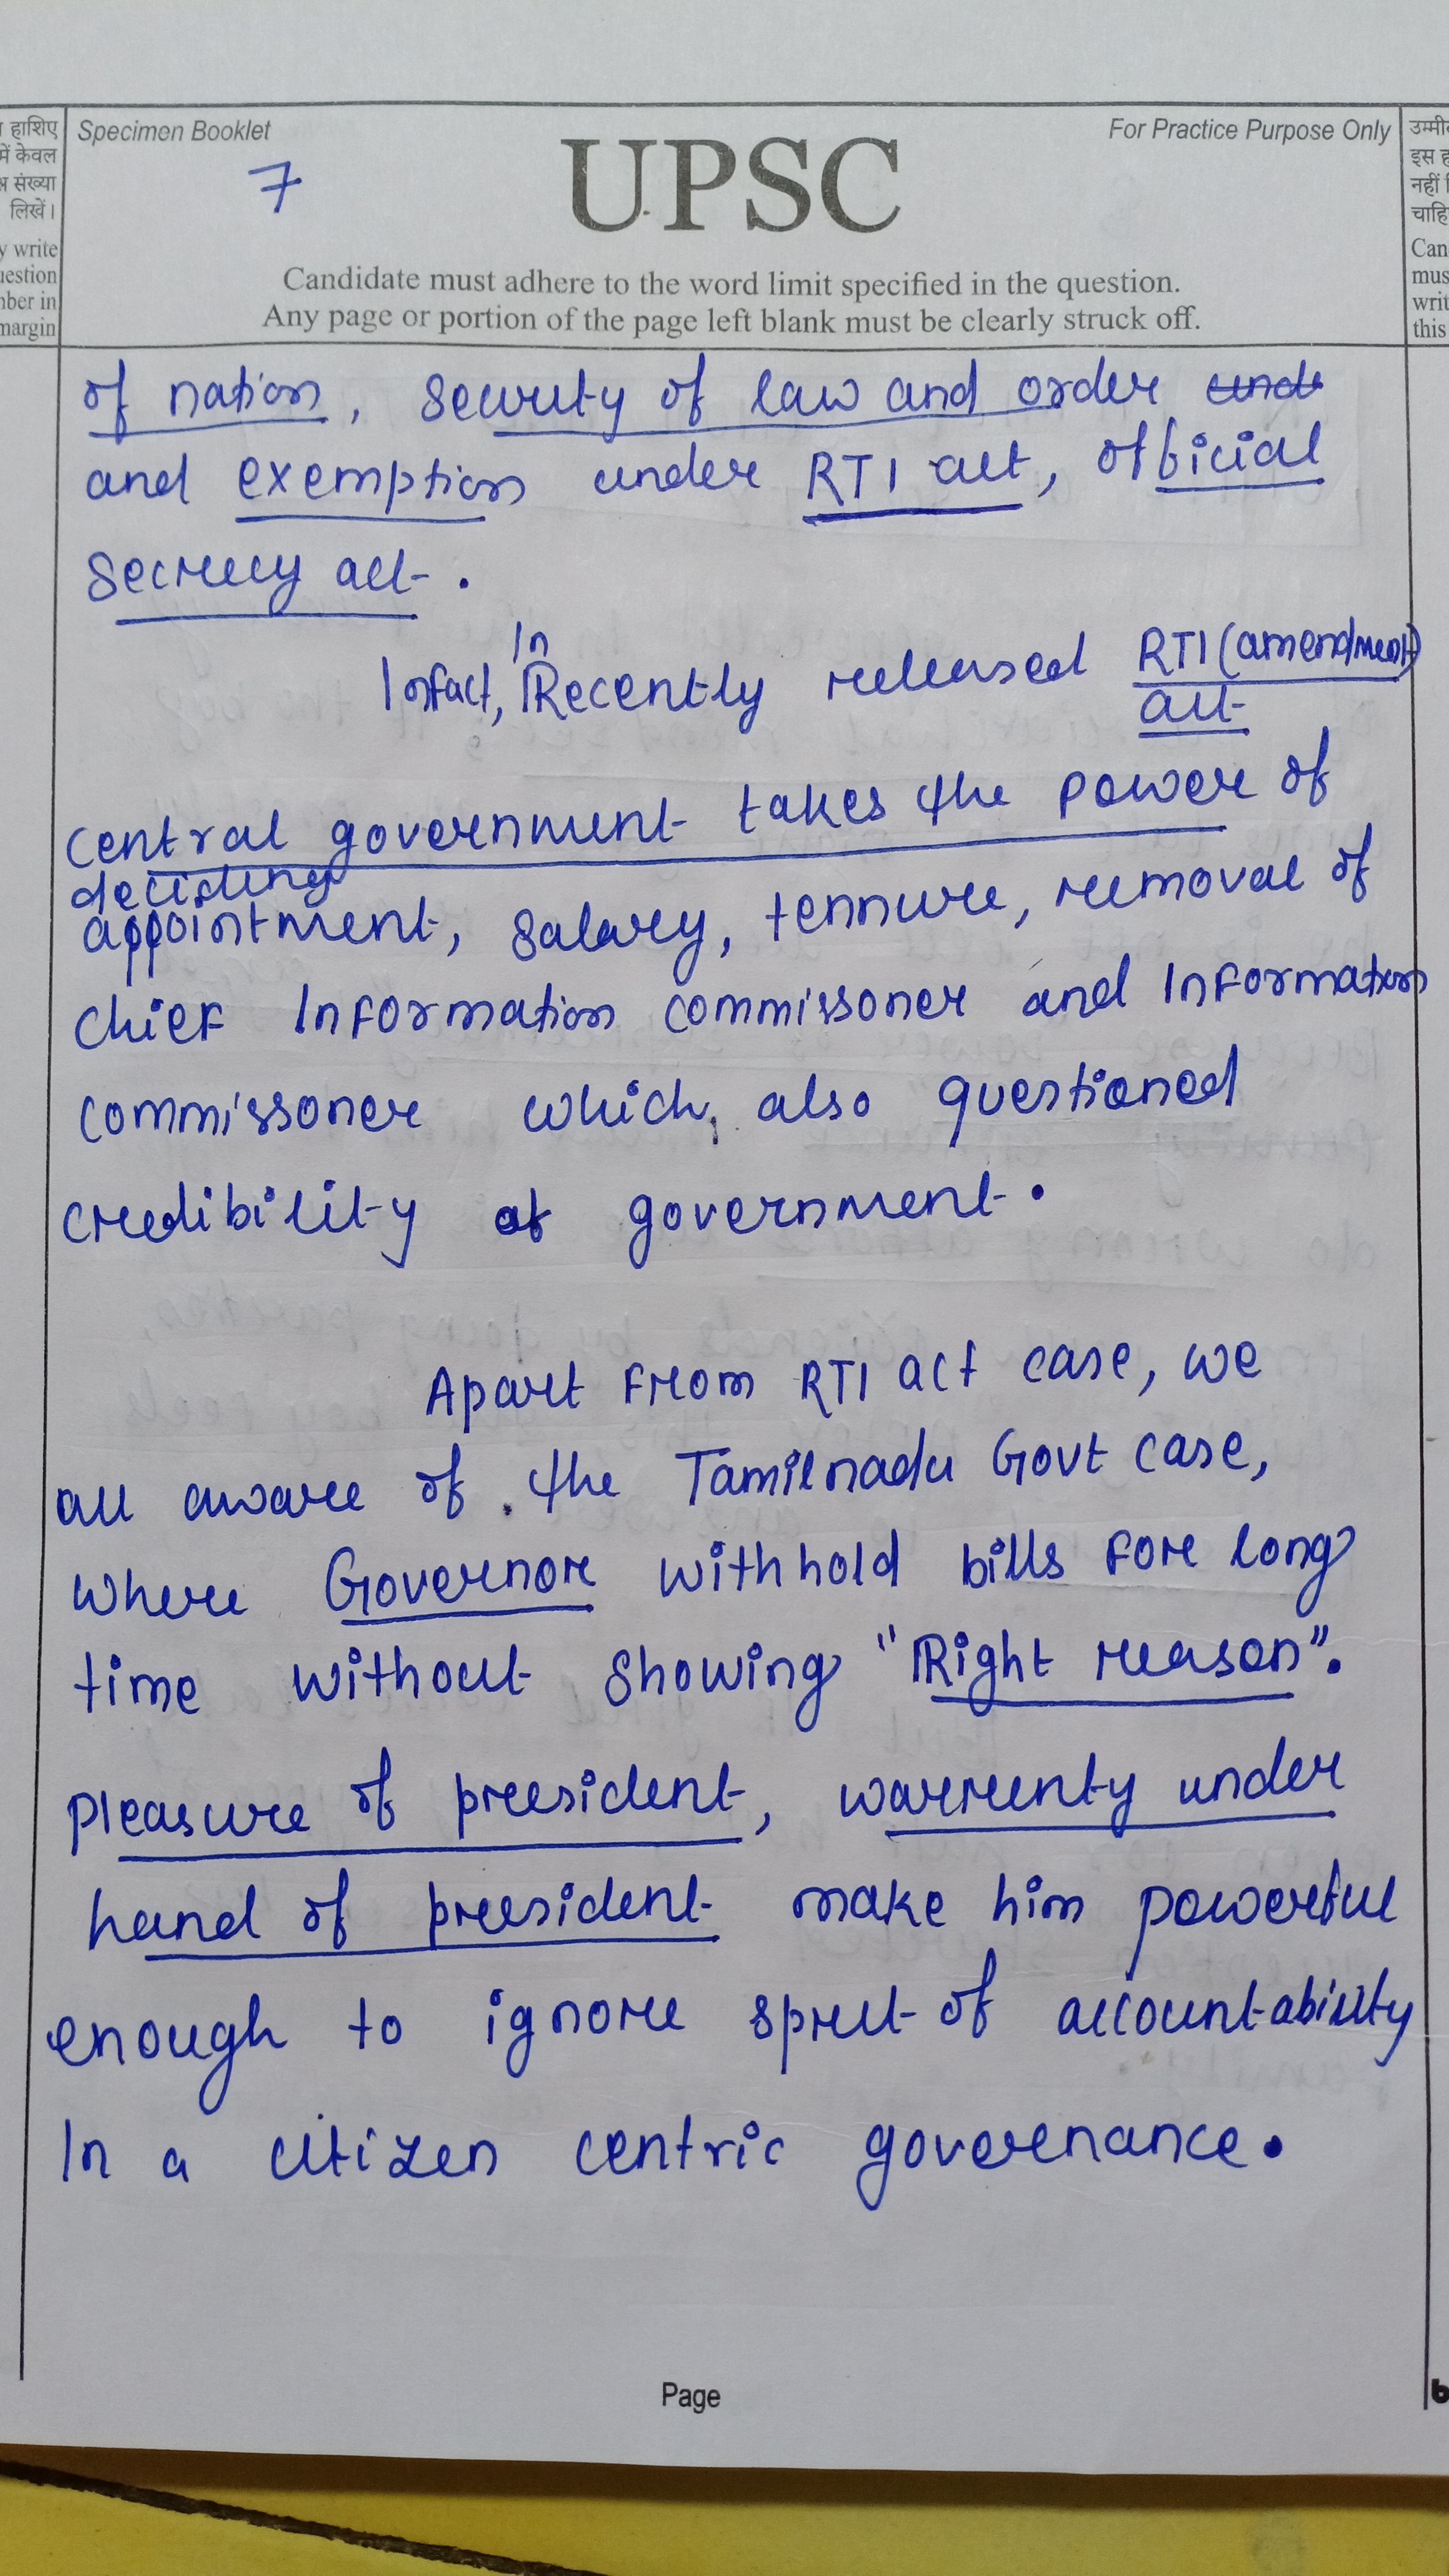 हाशिए
में केवल
संख्या
लिखें।
write
margin
Specimen Booklet
7
UPSC
For Practice Purpose Only
Candidate must adhere to the word limit specified in the question.
Any page or portion of the page left blank must be clearly struck off.
इस
नहीं
Can
mus
writ
this
of nation, Security of law and order
and exemption under RTI act, official
Secrecy act.
Infact, In Recently released RTI (amendment)
act
central government takes the power of
deciding
appointment, salary, tennure, removal of
chief Information commissoner and Information
commissoner which also questioned
credibility of government.
Apart from RTI act case, we
all aware of the Tamilnadu Govt case,
where Governor withhold bills for long
time without showing "Right reason".
Pleasure of president, warrenty under
hand of president make him powerful
enough to ignore sprit of accountability
In a citizen centric governance.
Page